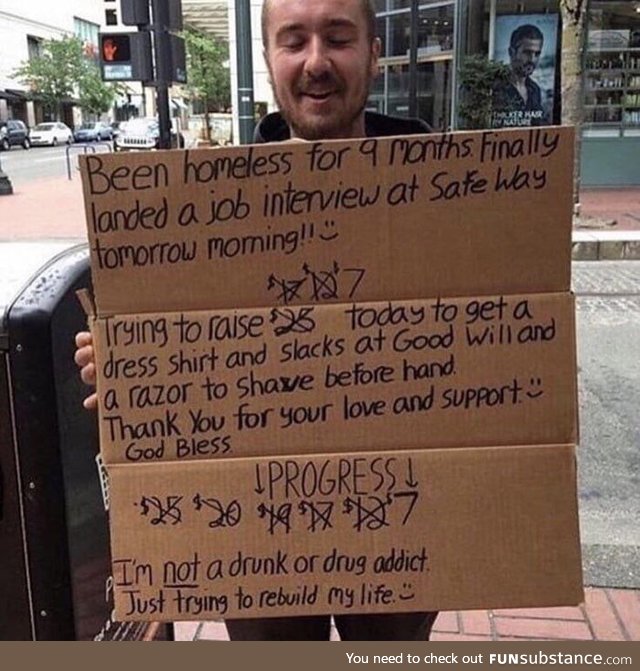 THICKER HAIR
BY NATURE
Been homeless for 9 months. Finally
landed a job interview at Safe Way
tomorrow morning!!
$17 $12 7
Trying to raise $25 today to get a
dress shirt and slacks at Good Will and
a razor to shave before hand.
Thank You for your love and support.
God Bless
↓PROGRESS↓
$25 $20 $19 $17 $12 7
I'm not a drunk or drug addict.
Just trying to rebuild my life.
You need to check out FUNsubstance.com